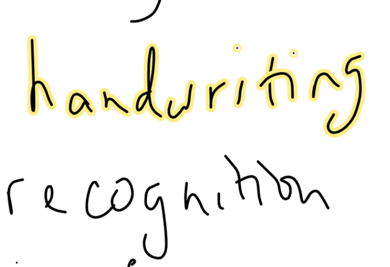 handwriting
recognition